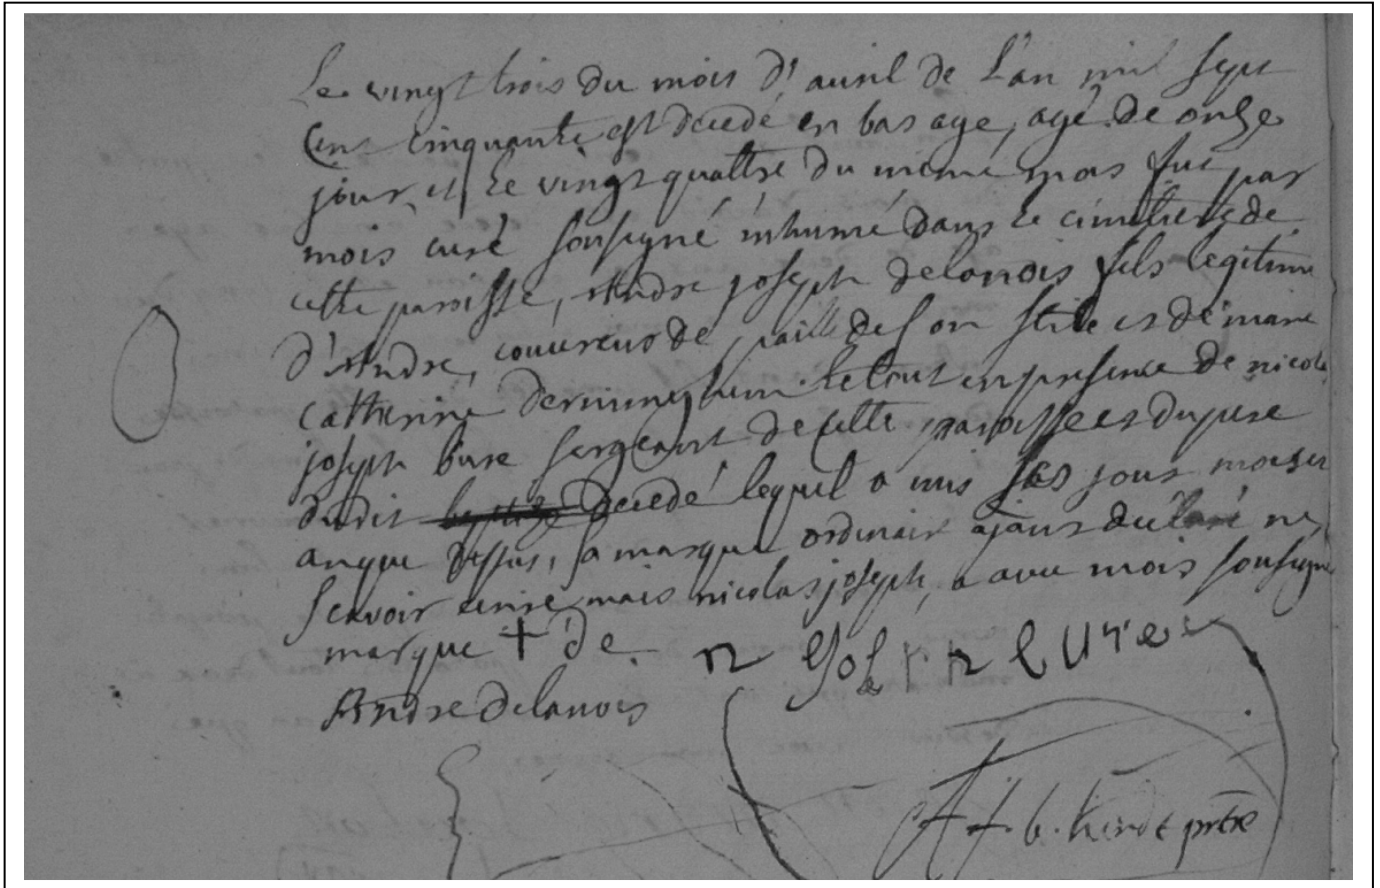 Le vingt trois du mois d'avril de L'an mil sept
Cens cinquante est decedé en bas age, agé de onze
jour, et le vingt quattre du même mois fut par
mois curé sousigné inhumé dans le cimetiere de
cette paroisse, Andre joseph delanois fils legitime
d'Andre, couvreur de paille de son stile et de marie
catherine le tout en presence de nicolas
joseph bure sergeant de cette paroisse et du pere
dudit decedé lequel a mis les jour mois et
an que dessus, sa marque ordinaire ajant declaré ne
scavoir ecrire mais nicolas joseph, a avec mois sousigné
marque + de n Josph bure
Andre delanois
A f. b. prtre